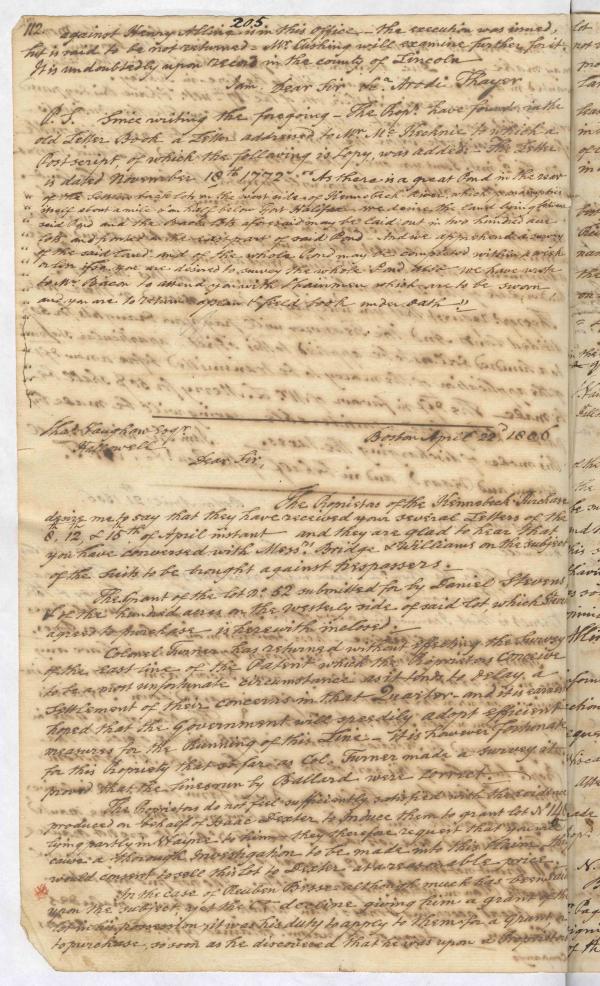 112 205
against Henry Alling is in this Office – the execution was issued,
but is said to be not returned – Mr. Cushing will examine further for it
It is undoubtedly upon record in the county of Lincoln
I am, Dear Sir &ca. Arodi Thayer
P.S. Since writing the foregoing – The Proprs. have found in the
old Letter Book a Letter addressed to Mr. McKechnie to which a
Postscript of which the following is Copy, was added – the Letter
is dated November 18th 1772 – "As there is a great Pond in the rear
of the Settlers back lots on the west side of Kennebeck River, which
about a mile & an half below Fort Halifax – we desire the land lying between
said Pond and the Back Lots aforesaid may be laid out in two hundred acre
lots and parted on the east part of said Pond. And we apprehend a survey
of the said land and of the whole Pond may be compleated within a week
you are desired to survey the whole Pond also – We have wrote
to Mr. Bacon to attend you with Chainmen which are to be sworn
and you are to return a plan & field book under Oath"
Thos. Esqr. Boston April 22d. 1806
Hallowell
Dear Sir,
The Proprietors of the Kennebeck Purchase
desire me to say that they have received your several Letters of the
8th, 12, & 15th of April instant and they are glad to hear that
you have conversed with Messrs. Bridge & Williams on the subject
of the suits to be brought against trespassers.
The Grant of the lot No. 52 submitted for by Daniel Stevens
& of the hundred acres on the Westerly side of said lot which
agreed to purchase is herewith inclosed.
Colonel Turner has returned without effecting the Survey
of the East line of the Patent which the Proprietors Conceive
to be a most unfortunate circumstance as it tends to delay a
settlement of their concerns in that Quarter – and it is earnestly
hoped that the Government will speedily adopt efficient
measures for the Running of this Line – It is however fortunate
for this Propriety that so far as Col. Turner made a survey it
proved that the lines run by Ballard were correct.
The Proprietors do not feel sufficiently satisfied with the evidence
produced on behalf of Isaac Dexter to induce them to grant lot No. 148
lying partly in Wayne to him – they therefore request that you will
cause a thorough Investigation to be made into this Claim. They
would consent to sell this lot to Dexter at a reasonable price.
In the case of Reuben Brown although much has been said
upon the subject yet the Co. decline giving him a grant of the
lot in his possession, it was his duty to apply to them for a Grant or
to purchase, so soon as he discovered that he was upon a Proprietors